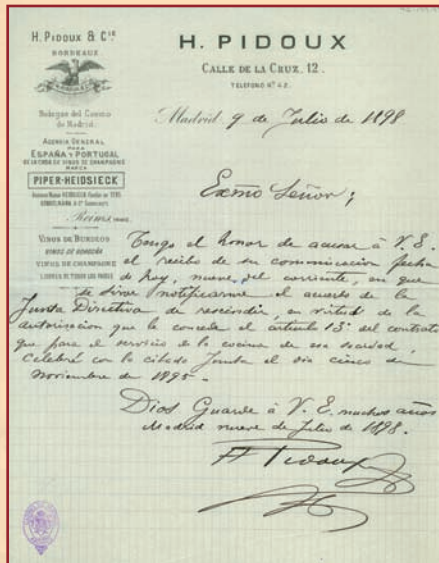 H. PIDOUX & Cie
BORDEAUX
Bodegas del Casino
de Madrid.
AGENCIA GENERAL
PARA
ESPAÑA Y PORTUGAL
DE LA CASA DE VINOS DE CHAMPAGNE
MARCA
PIPER-HEIDSIECK
Reims
VINOS DE BURDEOS
VINOS DE BORGOÑA
VINOS DE CHAMPAGNE
LICORES DE TODOS LOS PAISES
H. PIDOUX
CALLE DE LA CRUZ, 12.
TELÉFONO N.º 42.
Madrid 9 de Julio de 1898
Exmo Señor;
Tengo el honor de acusar á V. E.
el recibo de su comunicación fecha
de hoy, nueve del corriente, en que
se sirve notificarme el acuerdo de la
Junta Directiva de rescindir, en virtud de la
autorizacion que le concede el artículo 13º del contrato
que para el servicio de la cocina de esa sociedad,
celebré con la citada Junta el dia cinco de
Noviembre de 1895-
Dios Guarde á V. E. muchos años
Madrid nueve de Julio de 1898.
H Pidoux